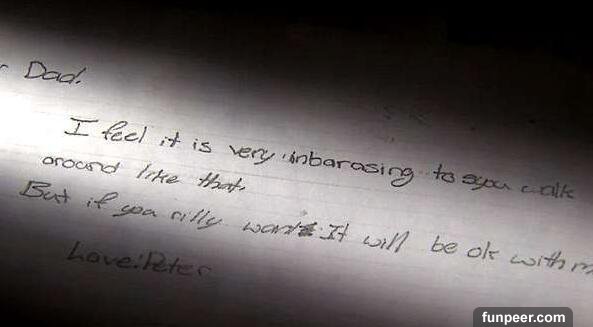 Dad.
I feel it is very inbarasing to you walk
around like that.
But if you rilly want It will be ok with m
Love: Peter
funpeer.com